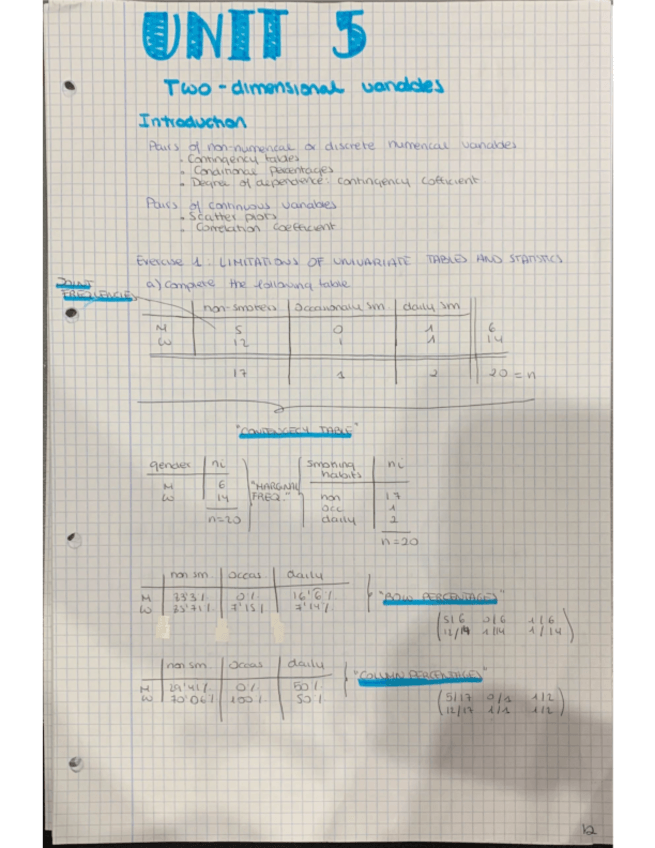 UNIT 5
Two-dimensional variables
Introduction
Pairs of non-numerical or discrete numerical variables
• Contingency tables
• Conditional percentages
• Degree of dependence: contingency cofficient
Pairs of continuous variables
• Scatter plots
• Correlation coefficient
Exercise 1: LIMITATIONS OF UNIVARIATE TABLES AND STATISTICS
JOINT
FREQUENCIES
a) complete the following table
non-smokers Occasionally sm. daily sm
M 5 0 1 6
W 12 1 1 14
17 1 2 20 = n
"CONTINGECY TABLE"
gender ni
M 6
W 14
n=20
"MARGINAL
FREQ."
Smoking
habits ni
non 17
occ 1
daily 2
n=20
non sm. occas daily
M 83'3% 0% 16'6%
W 85'71% 7'15% 7'14%
"ROW PERCENTAGES"
5/6 0/6 1/6
12/14 1/14 1/14
non sm. occas daily
M 29'41% 0% 50%
W 70'06% 100% 50%
"COLUMN PERCENTAGES"
5/17 0/1 1/2
12/17 1/1 1/2
12